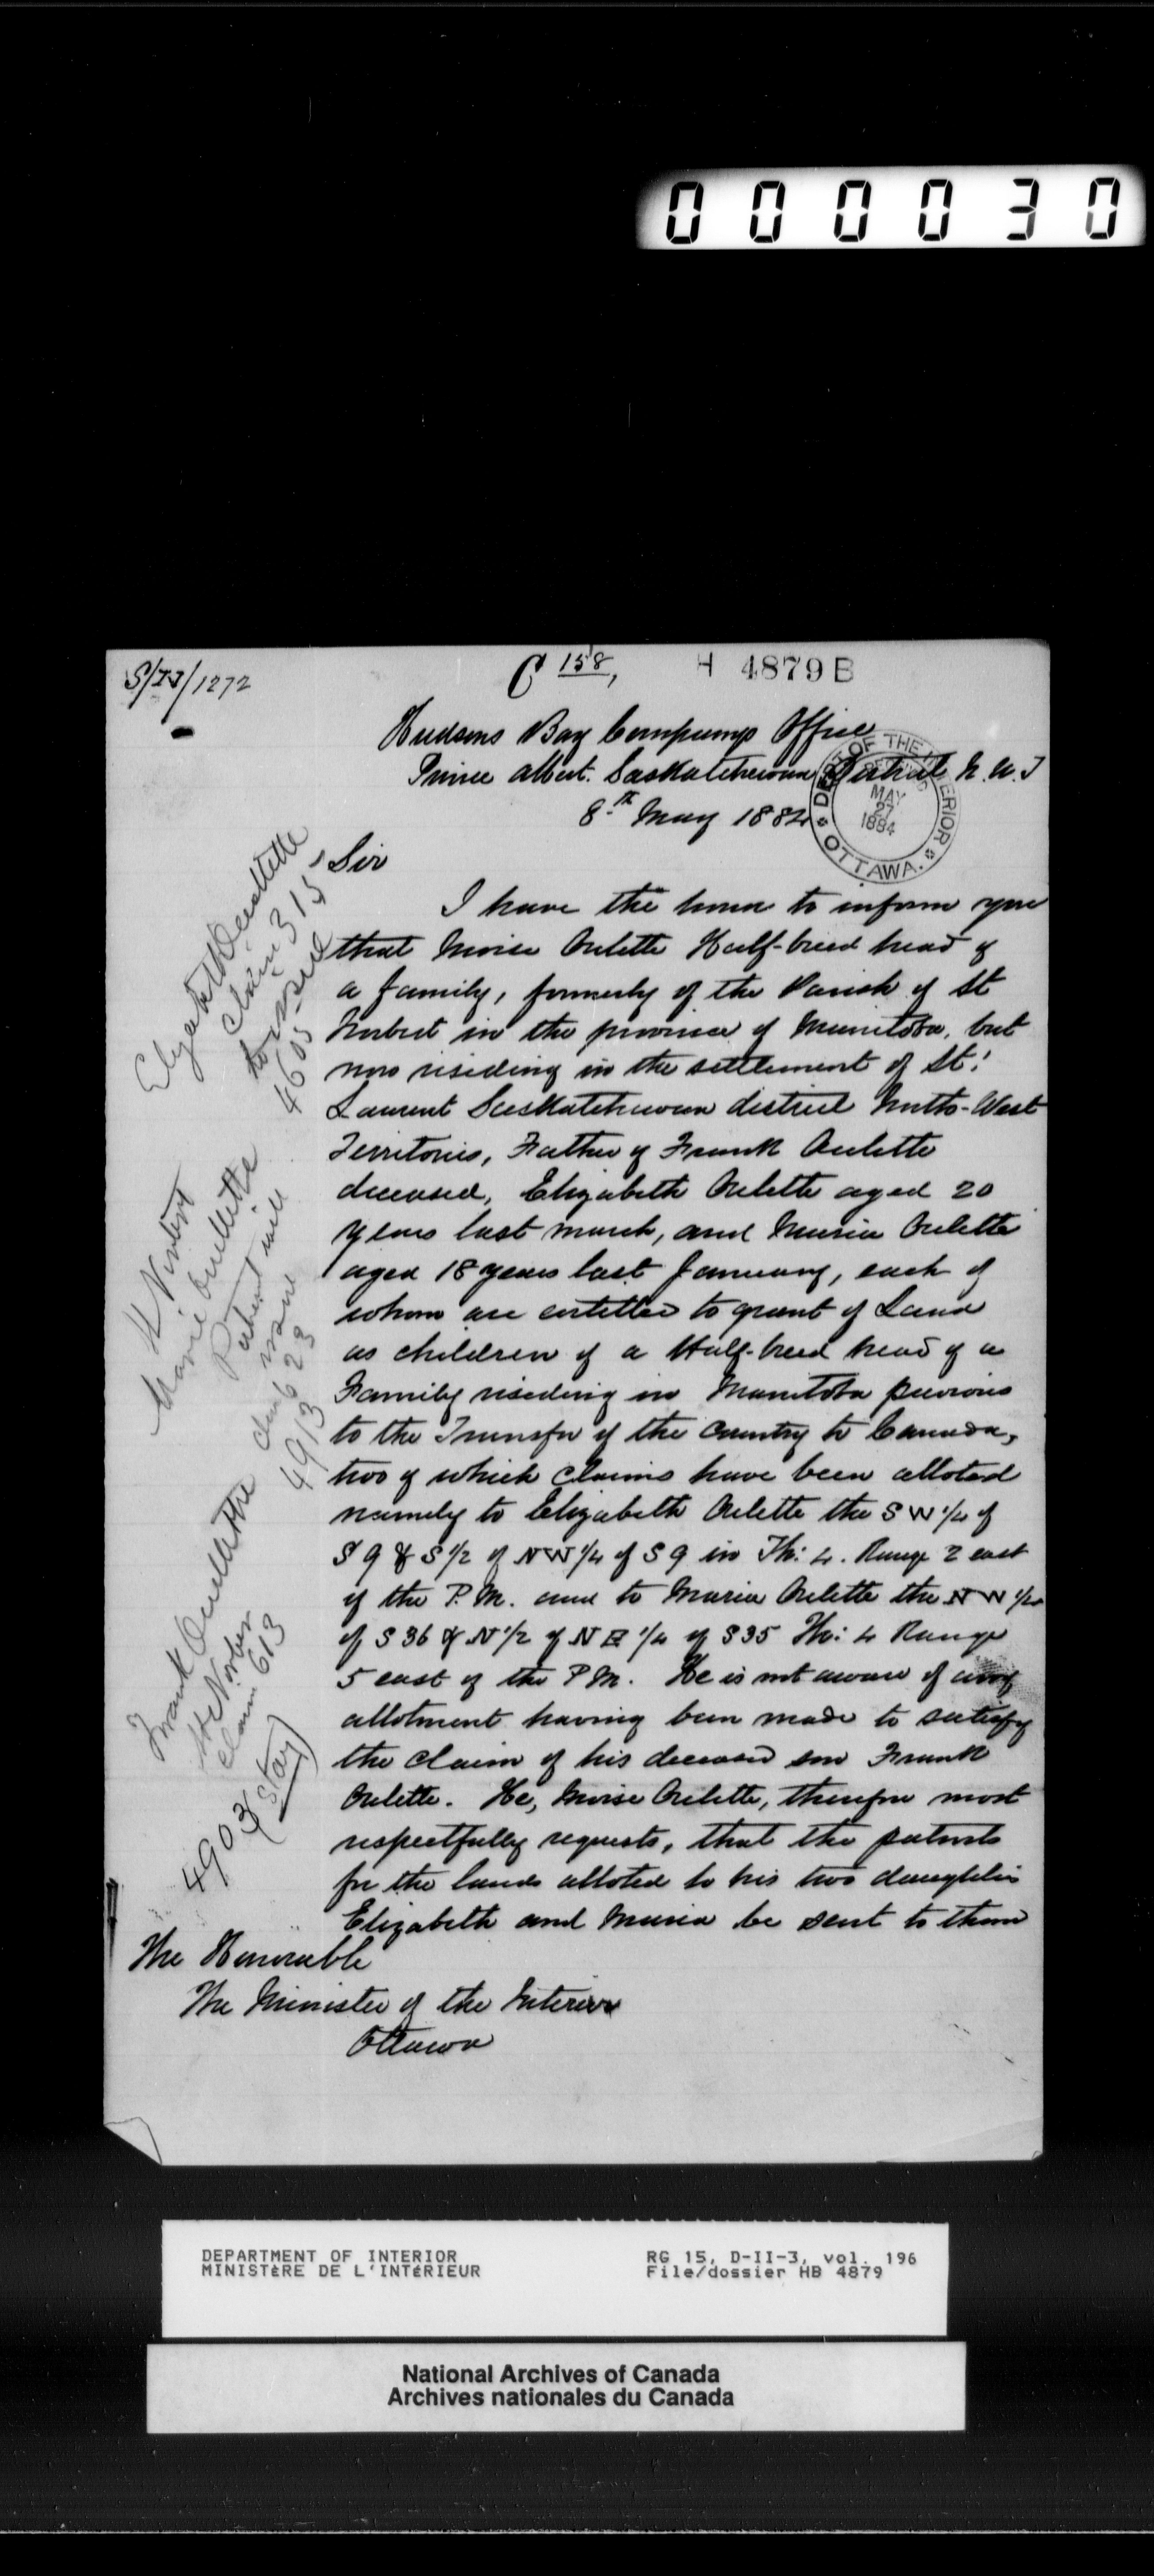 000030
C 158,
H 4879 B
Hudsons Bay Companys Office
Prince Albert. Saskatchewan District N.W.T
8th May 1884
DEPT OF THE INTERIOR
MAY
27
1884
OTTAWA.
Sir
I have the honor to inform you
that Moise Oulette Half-breed head of
a family, formerly of the Parish of St
Norbert in the province of Manitoba, but
now residing in the settlement of St:
Laurent Saskatchewan district North-West
Territories, Father of Frank Oulette
deceased, Elizabeth Oulette aged 20
years last march, and Maria Oulette
aged 18 years last January, each of
whom are entitled to grant of Land
as children of a Half-breed head of a
Family residing in Manitoba previous
to the Transfer of the Country to Canada,
two of which Claims have been alloted
namely to Elizabeth Oulette the SW 1/4 of
S 9 & S 1/2 of NW 1/4 of S 9 in Th: 4. Range 2 east
of the P.M. and to Maria Oulette the NW 1/4
of S 36 & N 1/2 of NE 1/4 of S 35 Th: 4 Range
5 east of the P.M. He is not aware of any
allotment having been made to satisfy
the Claim of his deceased son Frank
Oulette. He, Moise Oulette, therefore most
respectfully requests, that the patents
for the lands alloted to his two daughters
Elizabeth and Maria be sent to them
The Honorable
The Minister of the Interior
Ottawa
Elizabeth Ouellette
Claim 315
to issue
4605
St Norbert
Marie Ouellette
Patent will
issue
623
4913
Frank Ouellette
St Norbert
Claim 613
(Stay)
4903
DEPARTMENT OF INTERIOR
MINISTÈRE DE L'INTÉRIEUR
RG 15, D-II-3, vol. 196
File/dossier HB 4879
National Archives of Canada
Archives nationales du Canada